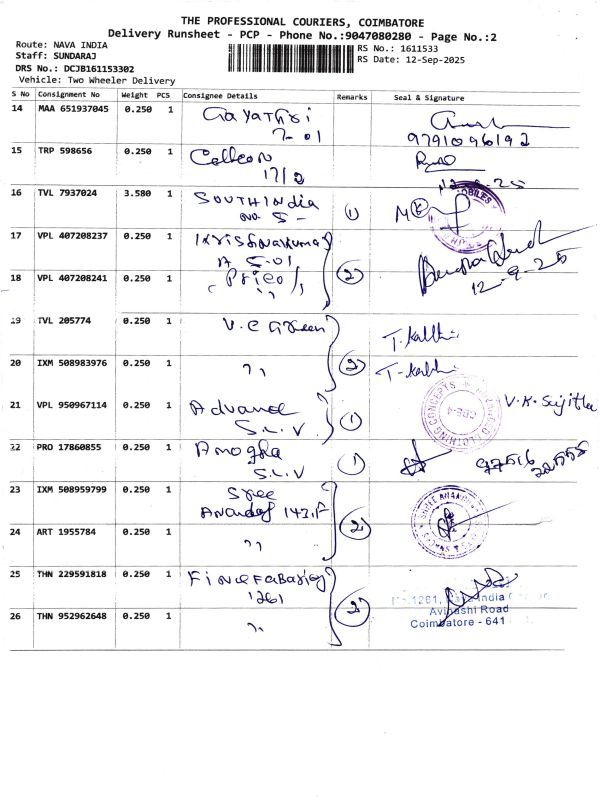 THE PROFESSIONAL COURIERS, COIMBATORE
Delivery Runsheet - PCP - Phone No.:9047080280 - Page No.:2
Route: NAVA INDIA
Staff: SUNDARAJ
DRS No.: DCJB161153302
Vehicle: Two Wheeler Delivery
RS No.: 1611533
RS Date: 12-Sep-2025
S No Consignment No Weight PCS Consignee Details Remarks Seal & Signature
14 MAA 651937045 0.250 1 Gayathri
7-01
9791096192
15 TRP 598656 0.250 1
17/2
16 TVL 7937024 3.580 1 SOUTH India
no. 5- 1
17 VPL 407208237 0.250 1 Krishnakumar
A 5-01
18 VPL 407208241 0.250 1 2
,, 12-9-25
19 TVL 205774 0.250 1 V.C Green
20 IXM 508983976 0.250 1 ,, 2
21 VPL 950967114 0.250 1 Advance
S.L.V 1 V.K. Sujitha
22 PRO 17860855 0.250 1 Amogha
S.L.V 1 97516
23 IXM 508959799 0.250 1 Sree
Anandaf 143.F
24 ART 1955784 0.250 1 ,, 2
25 THN 229591818 0.250 1
1261
26 THN 952962648 0.250 1 ,, 2
Avinashi Road
Coimbatore - 641